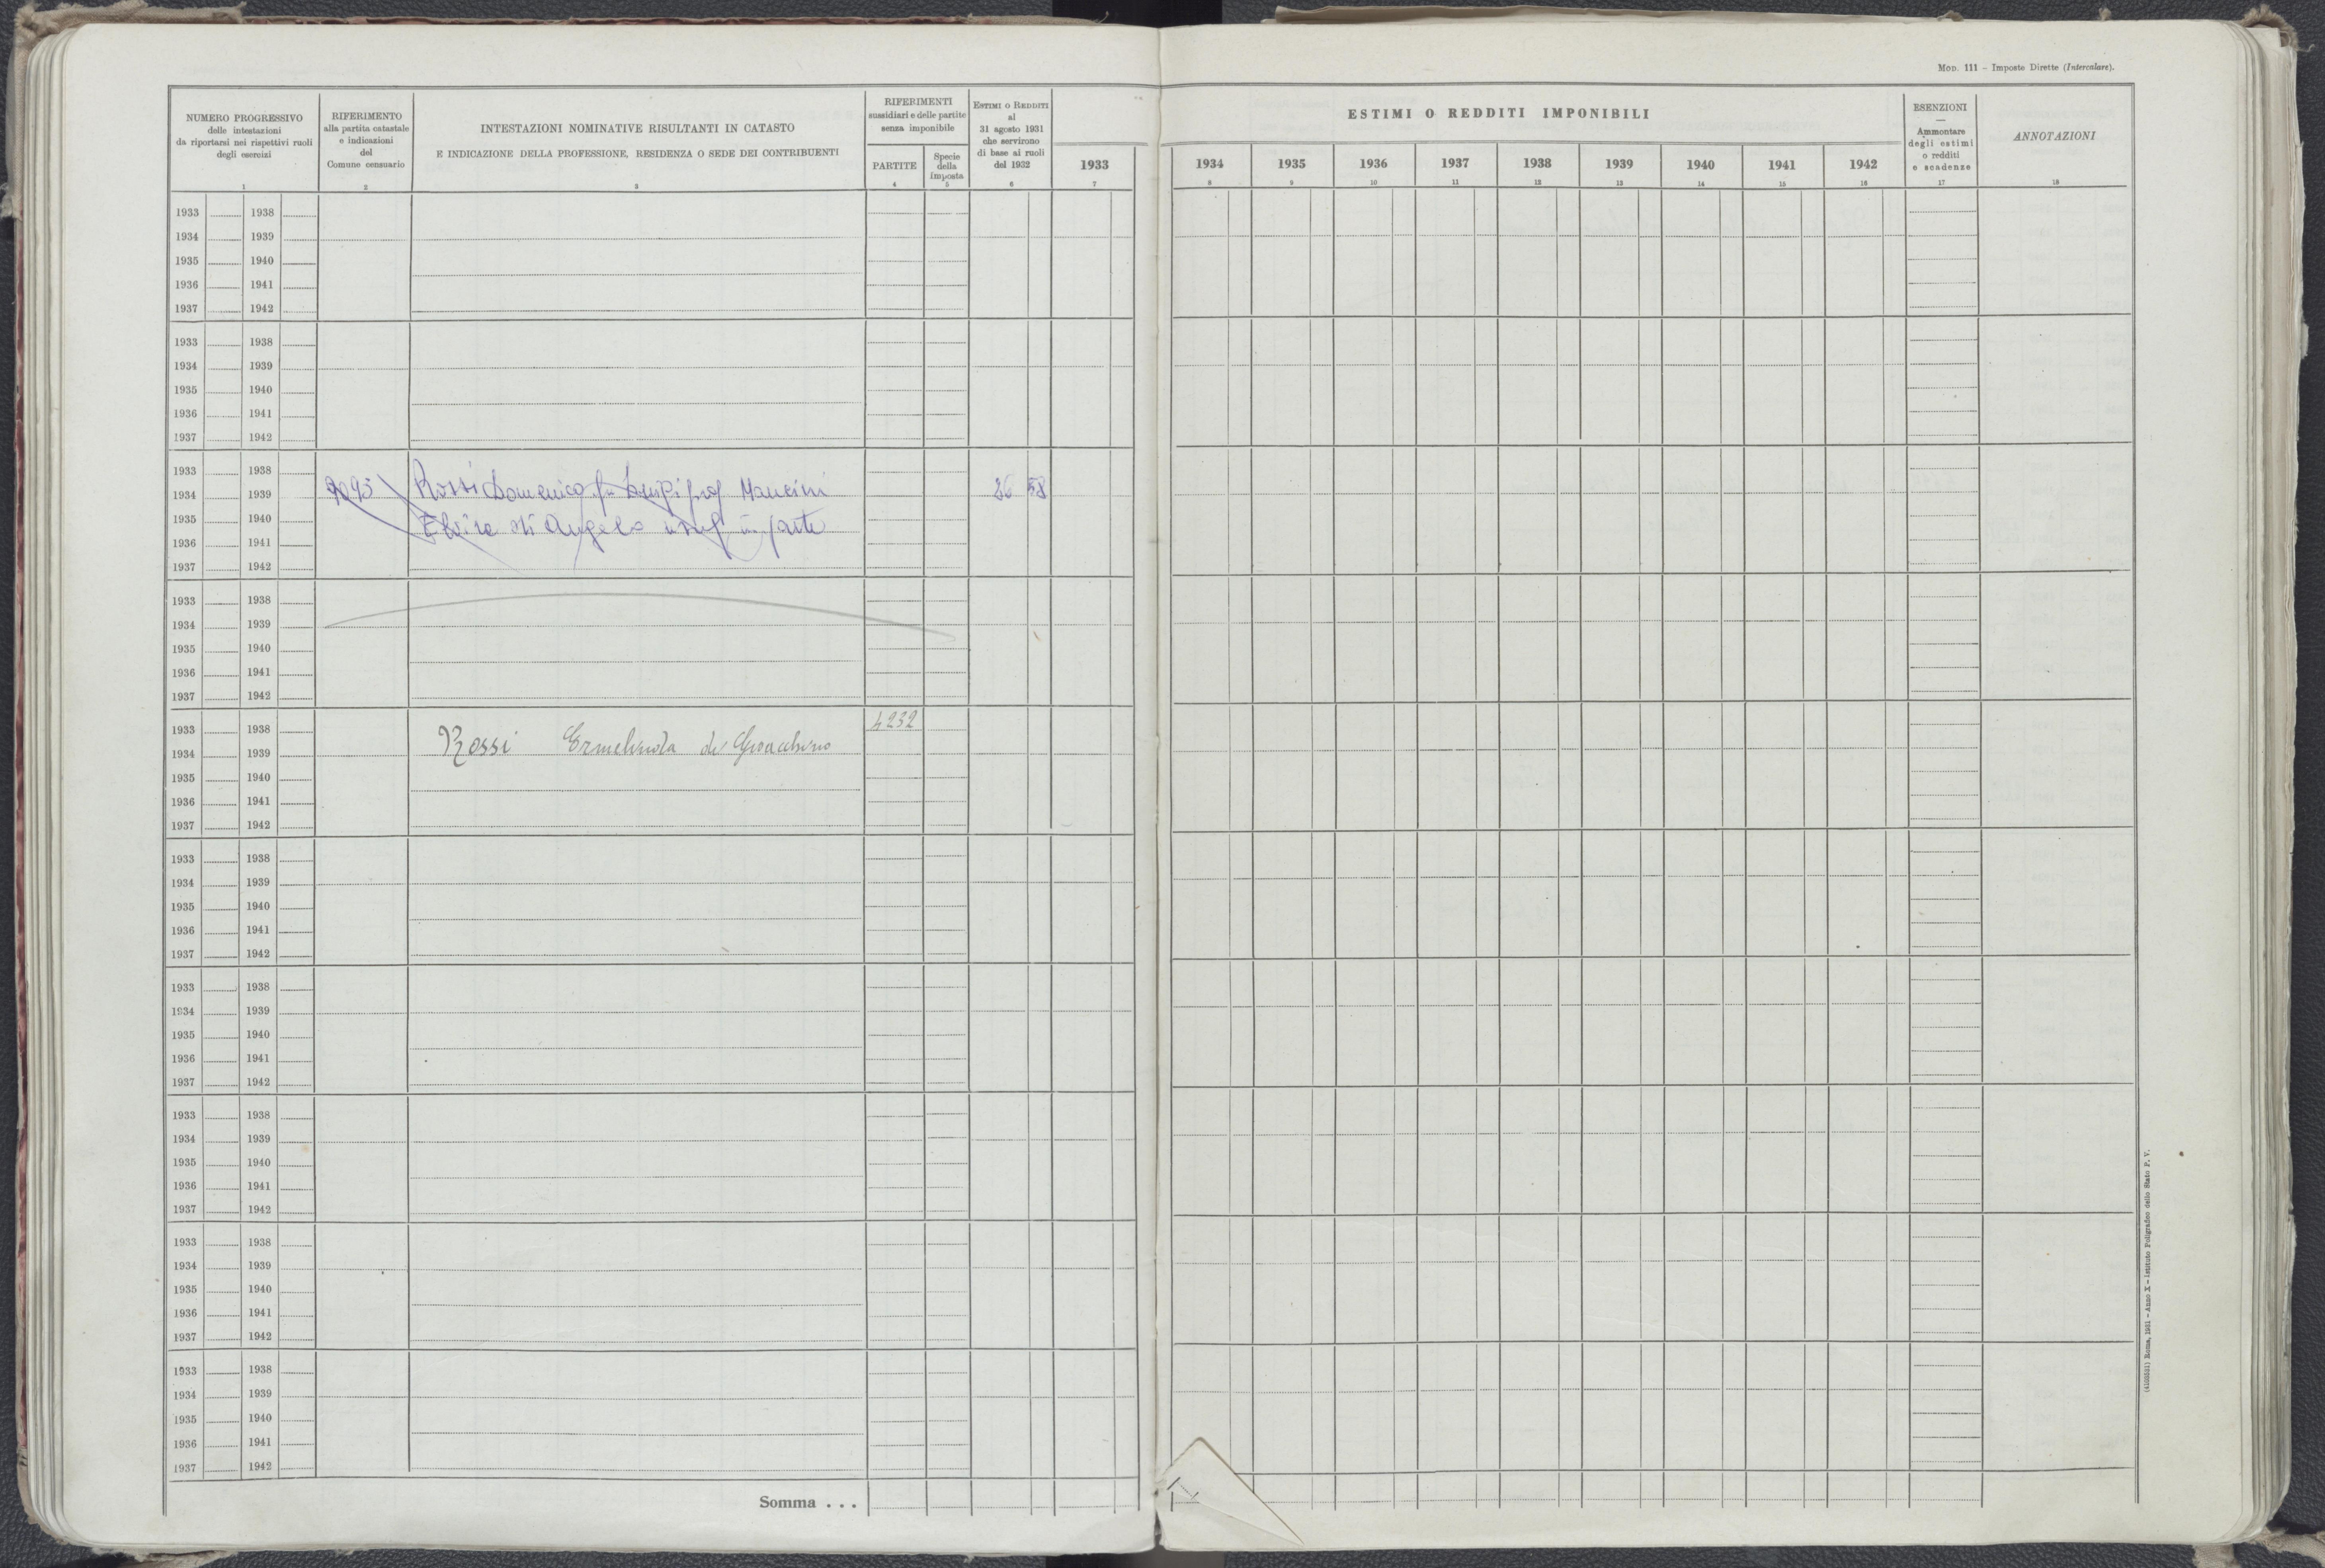 MOD. 111 – Imposte Dirette (Intercalare).
NUMERO PROGRESSIVO
delle intestazioni
da riportarsi nei rispettivi ruoli
degli esercizi
1
RIFERIMENTO
alla partita catastale
e indicazioni
del
Comune censuario
2
INTESTAZIONI NOMINATIVE RISULTANTI IN CATASTO
E INDICAZIONE DELLA PROFESSIONE, RESIDENZA O SEDE DEI CONTRIBUENTI
3
RIFERIMENTI
sussidiari e delle partite
senza imponibile
PARTITE
4
Specie
della
imposta
5
ESTIMI O REDDITI
al
31 agosto 1931
che servirono
di base ai ruoli
del 1932
6
1933
7
ESTIMI O REDDITI IMPONIBILI
1934 1935 1936 1937 1938 1939 1940 1941 1942
8 9 10 11 12 13 14 15 16
ESENZIONI
—
Ammontare
degli estimi
o redditi
e scadenze
17
ANNOTAZIONI
18
1933 1938
1934 1939
1935 1940
1936 1941
1937 1942
1933 1938
1934 1939
1935 1940
1936 1941
1937 1942
1933 1938
1934 1939 Rossi Domenico fu Luigi prop Mancini 26 58
1935 1940 Elvira di Angelo usuf in parte
1936 1941
1937 1942
1933 1938
1934 1939
1935 1940
1936 1941
1937 1942
1933 1938 4232
1934 1939 Rossi Ermelinda di Gioacchino
1935 1940
1936 1941
1937 1942
1933 1938
1934 1939
1935 1940
1936 1941
1937 1942
1933 1938
1934 1939
1935 1940
1936 1941
1937 1942
1933 1938
1934 1939
1935 1940
1936 1941
1937 1942
1933 1938
1934 1939
1935 1940
1936 1941
1937 1942
1933 1938
1934 1939
1935 1940
1936 1941
1937 1942
Somma . . .
Roma, 1931 – Anno X – Istituto Poligrafico dello Stato P. V.